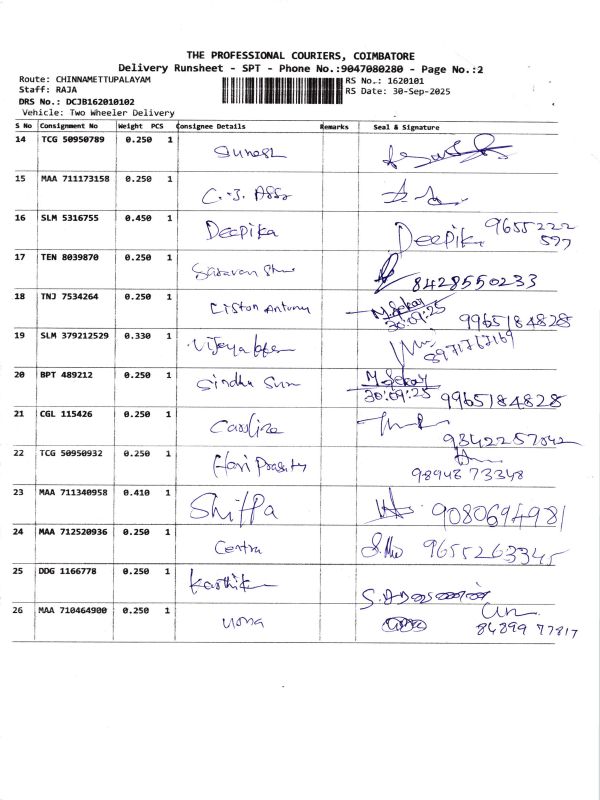 THE PROFESSIONAL COURIERS, COIMBATORE
Delivery Runsheet - SPT - Phone No.:9047080280 - Page No.:2
Route: CHINNAMETTUPALAYAM RS No.: 1620101
Staff: RAJA RS Date: 30-Sep-2025
DRS No.: DCJB162010102
Vehicle: Two Wheeler Delivery
S No Consignment No Weight PCS Consignee Details Remarks Seal & Signature
14 TCG 50950789 0.250 1
15 MAA 711173158 0.250 1
16 SLM 5316755 0.450 1 Deepika Deepika 9655222
577
17 TEN 8039870 0.250 1 8428550233
18 TNJ 7534264 0.250 1 Liston Antony M.Sekar
30:09:25 9965184828
19 SLM 379212529 0.330 1 8971767169
20 BPT 489212 0.250 1 Sindhu M.Sekar
30:09:25 9965184828
21 CGL 115426 0.250 1 9342257042
22 TCG 50950932 0.250 1 98948 73348
23 MAA 711340958 0.410 1 Shilpa 9080694981
24 MAA 712520936 0.250 1 9655263345
25 DDG 1166778 0.250 1 Karthik
26 MAA 710464900 0.250 1 Uma 84899 77817